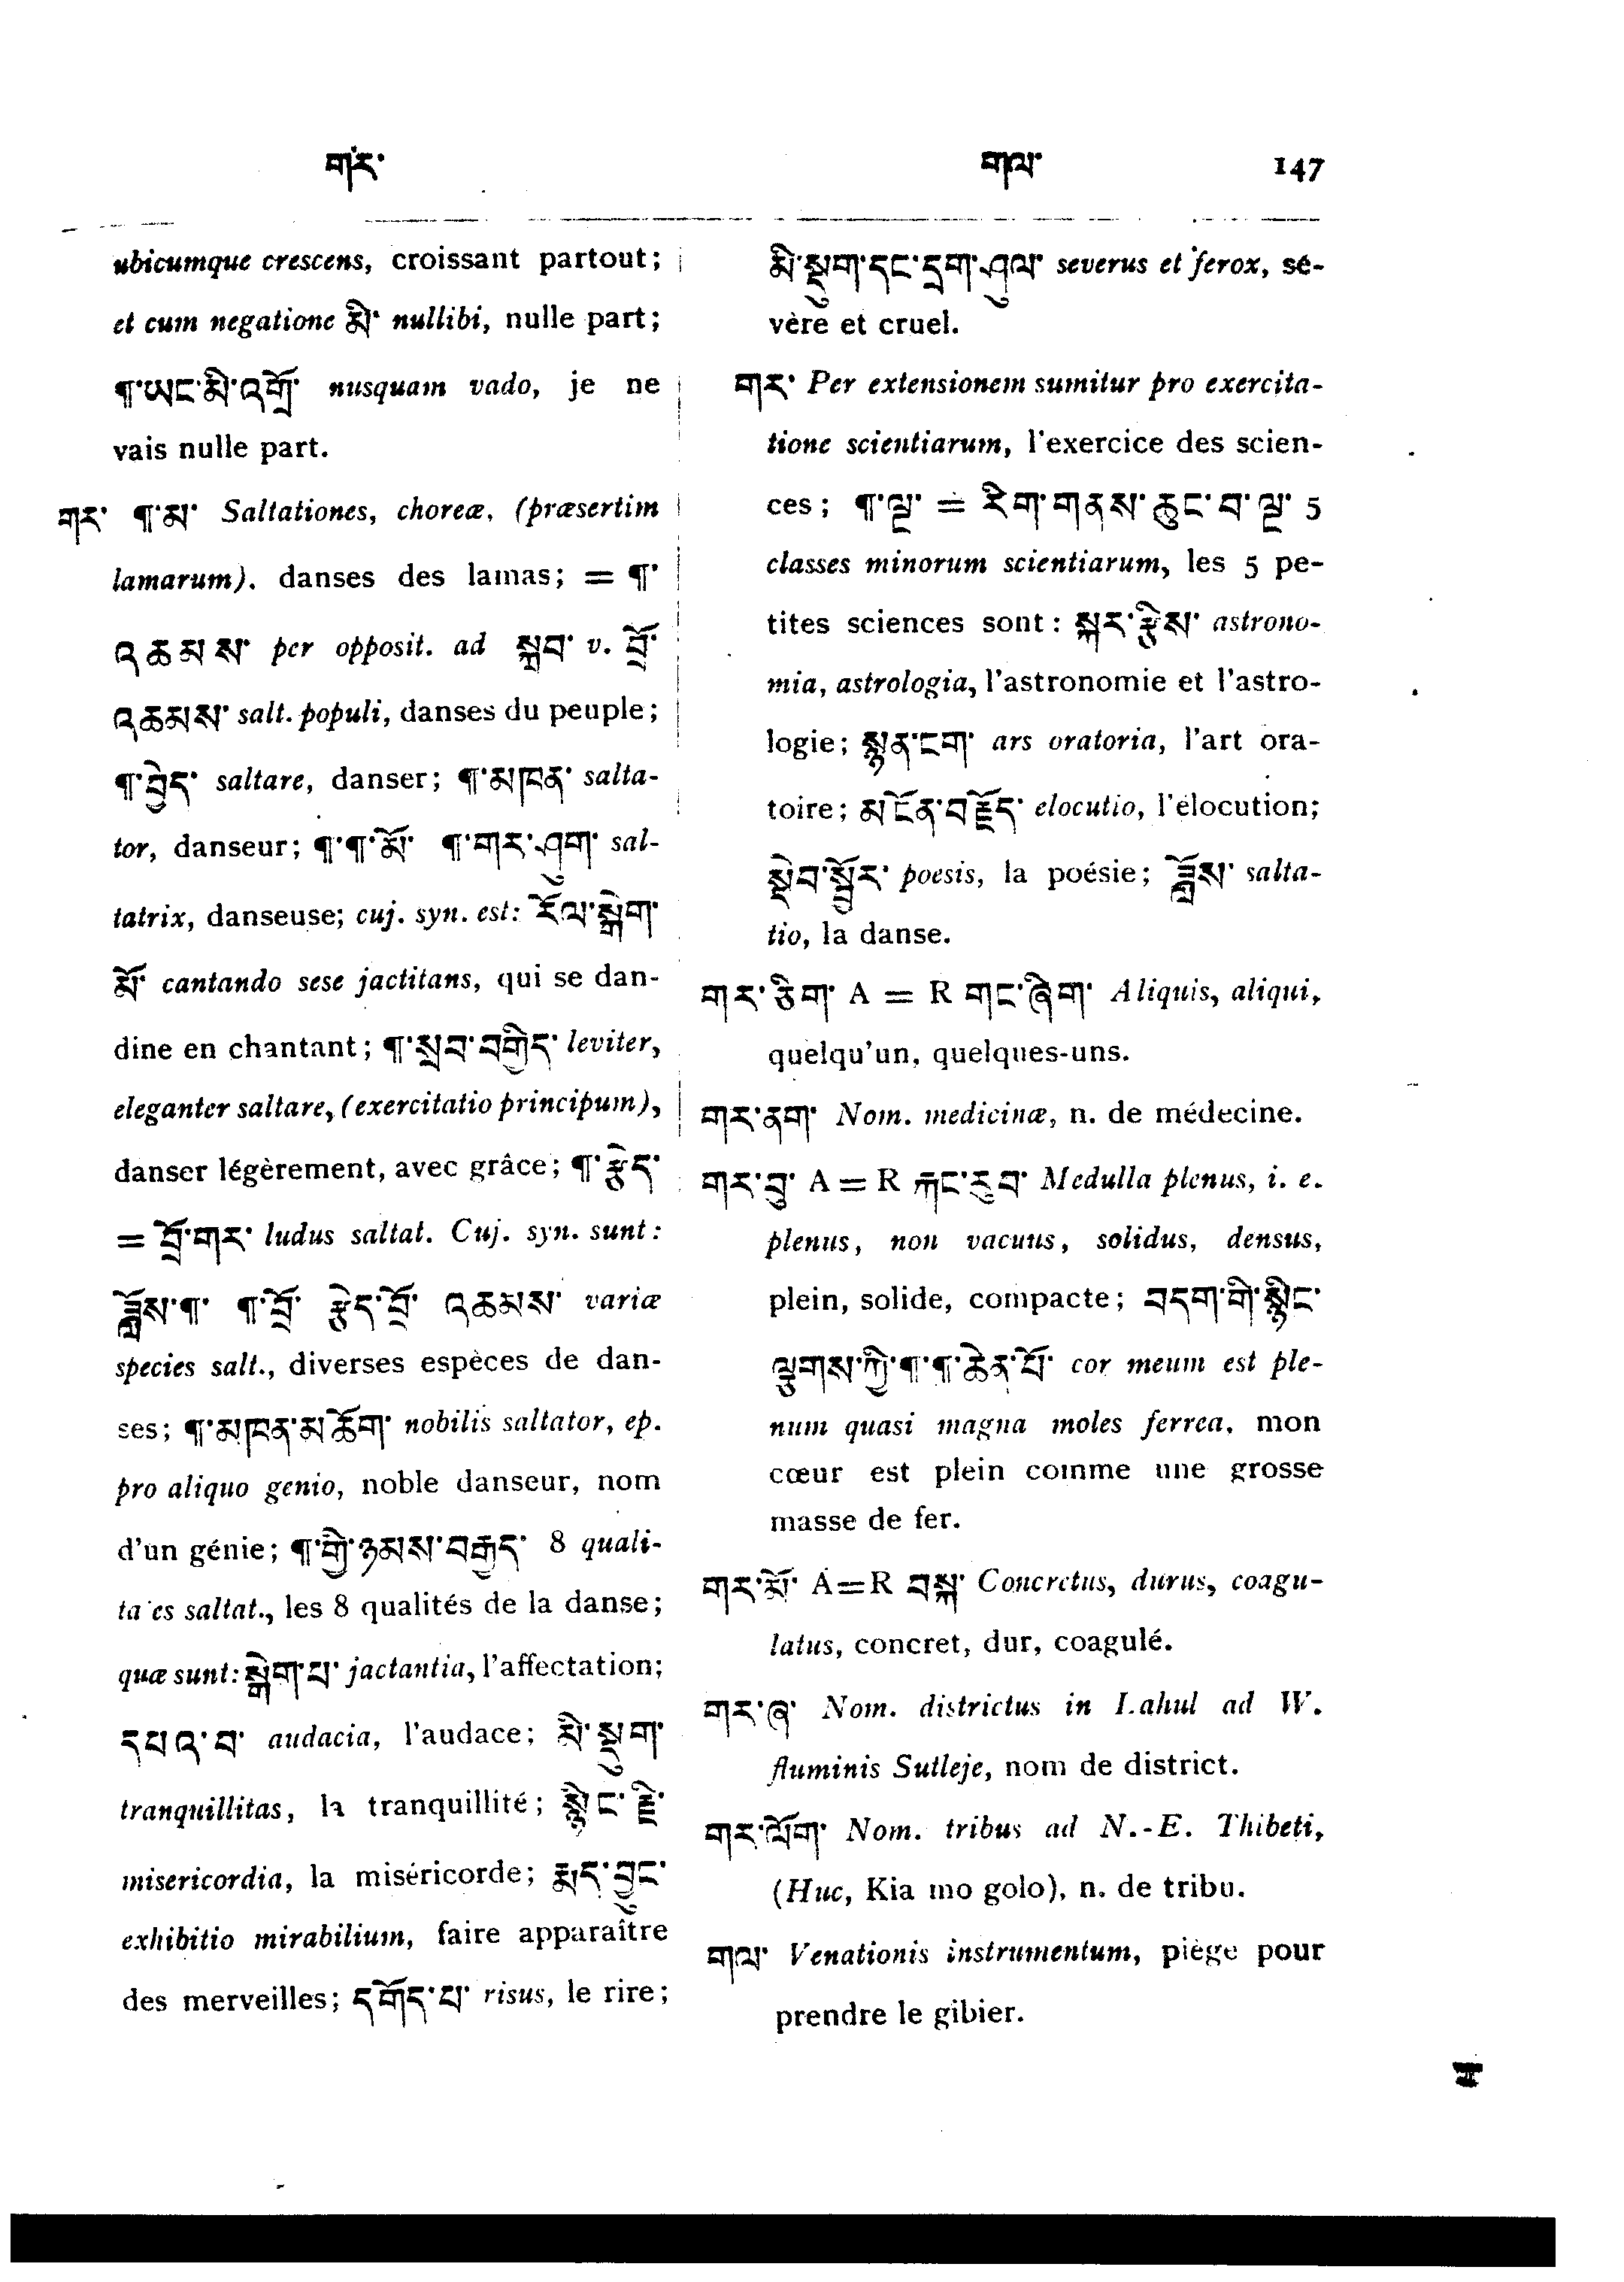 གར་ གལ་ 147
ubicumque crescens, croissant partout;
et cum negatione མི་ nullibi, nulle part;
¶་ཡང་མི་འགྲོ་ nusquam vado, je ne
vais nulle part.
གར་ ¶་མ་ Saltationes, choreæ, (præsertim
lamarum). danses des lamas; = ¶་
འཆམས་ per opposit. ad སྐྲབ་ v. བྲོ་
འཆམས་ salt. populi, danses du peuple;
¶་བྱེད་ saltare, danser; ¶་མཁན་ salta-
tor, danseur; ¶་¶་མོ་ ¶་གར་ཤུག་ sal-
tatrix, danseuse; cuj. syn. est: རོལ་སྒེག་
མོ་ cantando sese jactitans, qui se dan-
dine en chantant; ¶་སྲབ་བགྱིད་ leviter,
eleganter saltare, (exercitatio principum),
danser légèrement, avec grâce; ¶་རྩེད་
= བྲོ་གར་ ludus saltat. Cuj. syn. sunt:
ཟློས་¶་ ¶་བྲོ་ རྩེད་བྲོ་ འཆམས་ variæ
species salt., diverses espèces de dan-
ses; ¶་མཁན་མཆོག་ nobilis saltator, ep.
pro aliquo genio, noble danseur, nom
d'un génie; ¶་གྱི་ཉམས་བརྒྱད་ 8 quali-
ta es saltat., les 8 qualités de la danse;
quæ sunt: སྒེག་པ་ jactantia, l'affectation;
དཔའ་བ་ audacia, l'audace; མི་སྡུག་
tranquillitas, la tranquillité; སྙིང་རྗེ་
misericordia, la miséricorde; རྨད་བྱུང་
exhibitio mirabilium, faire apparaître
des merveilles; དགོད་པ་ risus, le rire;
མི་སྡུག་དང་དྲག་ཤུལ་ severus et ferox, sé-
vère et cruel.
གར་ Per extensionem sumitur pro exercita-
tione scientiarum, l'exercice des scien-
ces; ¶་ལྔ་ = རིག་གནས་ཆུང་བ་ལྔ་ 5
classes minorum scientiarum, les 5 pe-
tites sciences sont: སྐར་རྩིས་ astrono-
mia, astrologia, l'astronomie et l'astro-
logie; སྙན་ངག་ ars oratoria, l'art ora-
toire; མངོན་བརྗོད་ elocutio, l'élocution;
སྡེབ་སྦྱོར་ poesis, la poésie; ཟློས་ salta-
tio, la danse.
གར་ཅིག་ A = R གང་ཞིག་ Aliquis, aliqui,
quelqu'un, quelques-uns.
གར་ནག་ Nom. medicinæ, n. de médecine.
གར་བུ་ A = R རྐང་རུབ་ Medulla plenus, i. e.
plenus, non vacuus, solidus, densus,
plein, solide, compacte; བདག་གི་སྙིང་
ལྕགས་ཀྱི་¶་¶་ཆེན་པོ་ cor meum est ple-
num quasi magna moles ferrea, mon
cœur est plein comme une grosse
masse de fer.
གར་མོ་ A=R བསྐ་ Concretus, durus, coagu-
latus, concret, dur, coagulé.
གར་ཞ་ Nom. districtus in Lahul ad W.
fluminis Sutleje, nom de district.
གར་ལོག་ Nom. tribus ad N.-E. Thibeti,
(Huc, Kia mo golo), n. de tribu.
གལ་ Venationis instrumentum, piège pour
prendre le gibier.